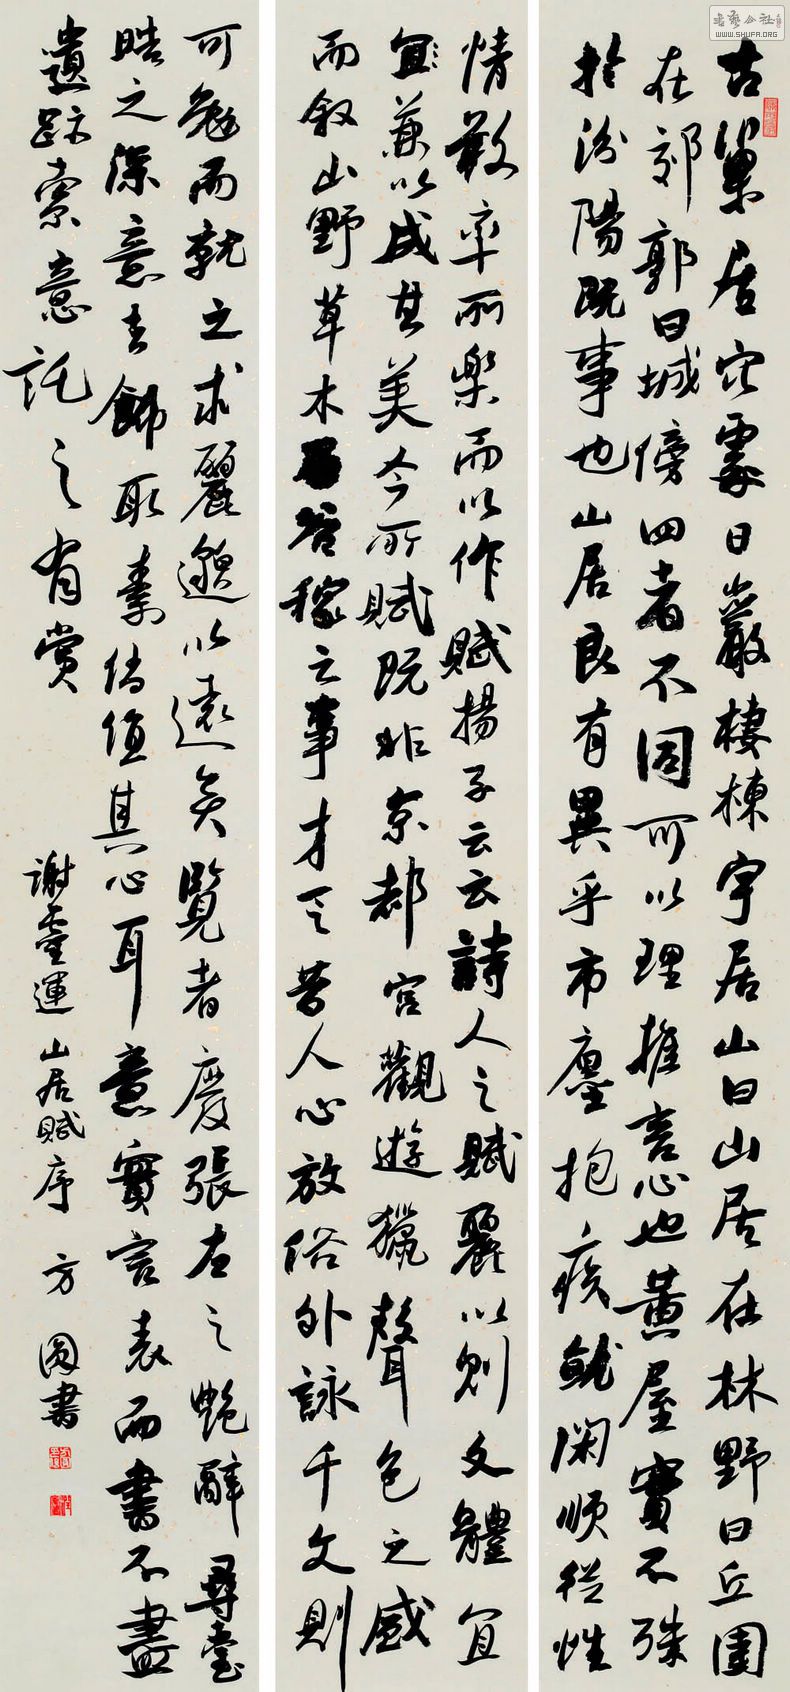 古巢居穴處曰巖棲棟宇居山曰山居在林野曰丘園
在郊郭曰城傍四者不同可以理推言心也黃屋實不殊
於汾陽既事也山居良有異乎市廛抱疾就閑順從性
情敢率所樂而以作賦揚子云云詩人之賦麗以則文體宜
宜兼以成其美今所賦既非京都宮觀遊獵聲色之盛
而叙山野草木谷稼之事才乏昔人心放俗外詠于文則
可勉而就之求麗邈以遠矣覽者廢張左之艷辭尋臺
皓之深意去飾取素儻值其心耳意實言表而書不盡
遺跡索意託之有賞
謝靈運山居賦序 方圓書
書藝公社
WWW.SHUFA.ORG